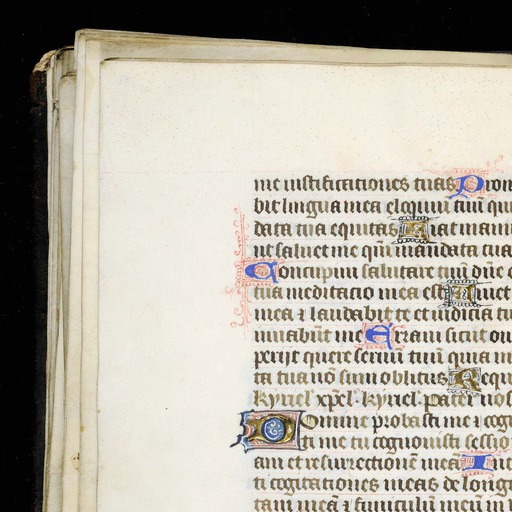 me iustificationes tuas Pron
bit lingua mea eloquiū tuū qu
data tua equitas Fiat manu
ut saluet me qm̄ mandata tua
Concupiui salutare tuū dn̄e e
tua meditacio mea est Uiuet
mea ⁊ laudabit te et iudicia tu
uuabūt me Erraui sicut ou
perijt quere seruū tuū quia m
ta tua nō sum oblitus Requ
kyriel xpel. kyriel. pater nos
Domine probasti me ⁊ cog
ti me tu cognouisti sessio
am et resurrectionē meā Int
ti cogitationes meas de long
tam meā ⁊ funiculū meū in